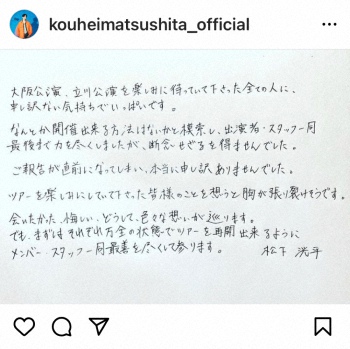 kouheimatsushita_official
大阪公演、立川公演を楽しみに待っていて下さった全ての人に、
申し訳ない気持ちでいっぱいです。
なんとか開催出来る方法はないかと模索し、出演者・スタッフ一同
最後まで力を尽くしましたが、断念せざるを得ませんでした。
ご報告が直前になってしまい、本当に申し訳ありませんでした。
ツアーを楽しみにしていて下さった皆様のことを想うと胸が張り裂けそうです。
会いたかった、悔しい、どうして、色々な想いが巡ります。
でも、まずはそれぞれ万全の状態でツアーを再開出来るように
メンバー・スタッフ一同最善を尽くして参ります。 松下 洸平